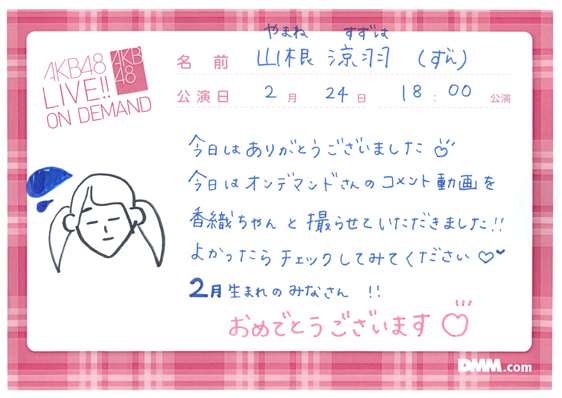 AKB48
LIVE!!
ON DEMAND
AKB
48
やまね すずは
名前 山根 涼羽 (ずん)
公演日 2月 24日 18:00 公演
今日はありがとうございました♡
今日はオンデマンドさんのコメント動画を
香織ちゃんと撮らせていただきました!!
よかったらチェックしてみてください♡
2月生まれのみなさん !!
おめでとうございます♡
DMM.com